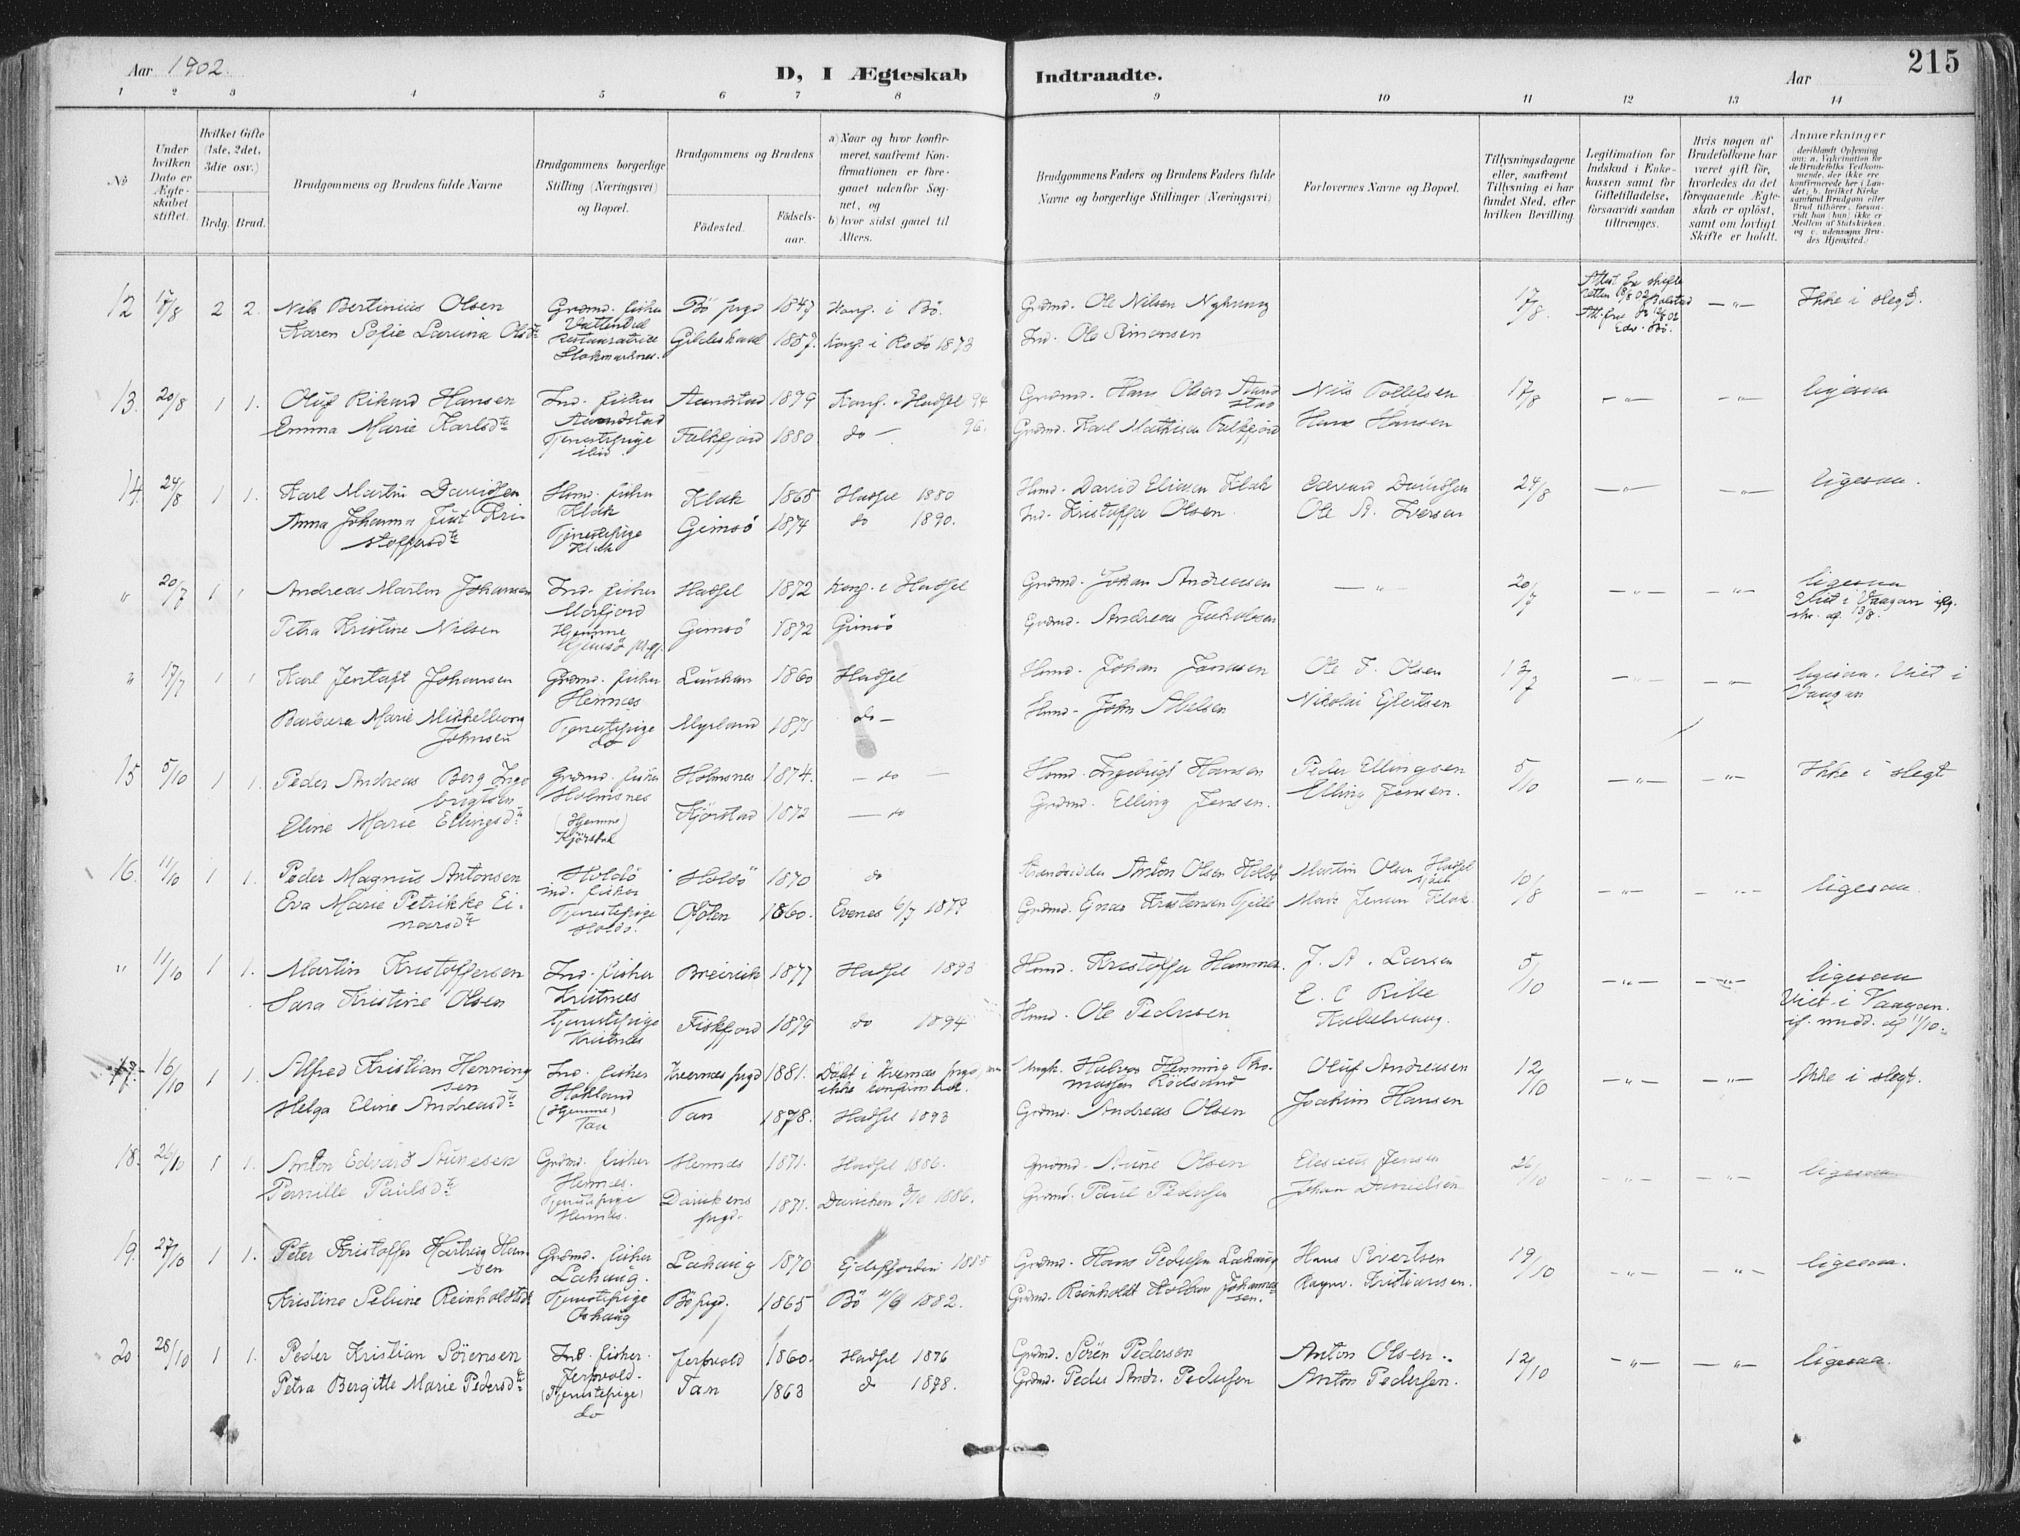 Aar 1902.
D, I Ægteskab Indtraadte.
Aar
215
1 2 3 4 5 6 7 8 9 10 11 12 13 14
No
Under hvilken Dato er Ægteskabet stiftet.
Hvilket Gifte (1ste, 2det, 3die osv.)
Brdg. Brud.
Brudgommens og Brudens fulde Navne
Brudgommens borgerlige Stilling (Næringsvei) og Bopæl.
Brudgommens og Brudens
Födested.
Födselsaar.
a) Naar og hvor konfirmeret, saafremt Konfirmationen er foregaaet udenfor Sognet, og
b) hvor sidst gaaet til Alters.
Brudgommens Faders og Brudens Faders fulde Navne og borgerlige Stillinger (Næringsvei)
Forlovernes Navne og Bopæl.
Tillysningsdagene eller, saafremt Tillysning ei har fundet Sted, efter hvilken Bevilling.
Legitimation for Indskud i Enkekassen samt for Giftetilladelse, forsaavidt saadan tiltrænges.
Hvis nogen af Brudefolkene har været gift för, hvorledes da det foregaaende Ægteskab er oplöst, samt om lovligt Skifte er holdt.
Anmærkninger
12 17/8 2 2. Nils Bertinius Olsen Grdmd. fisker Bö prgd 1847 Konf. i Bö. Grdmd. Ole Nilsen Nykvaag 17/8. —"— Ikke i slegt.
Karen Sofie Laruna Olsdte Stokmarknes. Gildeskaal 1857. Konf. i Rödö 1873 Ind. Ole Simonsen
13. 20/8 1 1. Oluf Rikard Hansen Ind. fisker Aandstad 1879 Konf. i Hadsel 94 Grdmd. Hans Olsen Aandstad Nils Tollefsen 17/8 —"— —"— ligesaa
Emma Marie Karlsdte Tjenestepige ibid. Falkfjord 1880 do — 96. Grdmd. Karl Mathisen Falkfjord Hans Hansen
14. 24/8 1 1. Karl Martin Davidsen Hmd. fisker Klak Klak 1865 Hadsel 1880 Hmd. David Eliasen Klak Edevard Davidsen 24/8 —"— —"— ligesaa.
Anna Johanna Kristoffersdte Tjenestepige Klak Gimsö 1874 do 1890. Ind. Kristoffer Olsen. Ole A. Iversen
" 20/7 1 1 Andreas Martin Johansen Ind. fisker Morfjord Hadsel 1872 Konf. i Hadsel Grdmd. Johan Andreasen —"— 20/7 —"— —"— ligesaa
Petra Kristine Nilsen Hjemme Gimsö 1872 Gimsö Grdmd. Andreas Jakobsen Viet i Vaagan
" 17/7 1 1 Karl Jentoft Johansen Grdmd. fisker Hennes 1860 Hadsel Hmd. Johan Jonassen Ole T. Olsen 13/7 —"— —"— ligesaa. Viet i Vaagan
Barbara Marie Mikkelborg Johnsen Tjenestepige do Myrland 1871 do — Hmd. John Abelsen Nikolai Ejlertsen
15 5/10 1 1. Peder Andreas Berg Ingebrigtsen Grdmd. fisker Holmsnes Holmsnes 1874. — do — Hmd. Ingebrigt Hansen Peder Ellingsen 5/10 —"— —"— Ikke i slegt
Eline Marie Ellingsdte (Hjemme) Kjörstad Kjörstad 1872 — do Grdmd. Elling Jensen. Elling Jensen.
16. 11/10 1 1. Peder Magnus Antonsen Holdö ind. fisker Holdö 1870 do Anton Olsen Holdö Martin Olsen 10/8 —"— —"— ligesaa.
Eva Marie Petrikke Einarsdte Tjenestepige Holdö. Ofoten 1860. Evenes 6/7 1879 Grdmd. Kristensen Klak.
" 11/10 1 1. Martin Kristoffersen Ind. fisker Kristnes Breivik 1877 Hadsel 1893 Hmd. Kristoffer J. A. Larsen 5/10 —"— —"— ligesaa
Sara Kristine Olsen Tjenestepige Kristnes Fiskfjord 1879 do 1894 Hmd. Ole Pedersen E. C Kabelvaag. Viet i Vaagan. if. medd. af 11/10.
17. 16/10 1 1. Alfred Kristian Henningsen Ind. fisker Hokland Kvernes prgd 1881. Döbt i Kvernes prgd, ikke konfirm. Ungk. Halvor Henning Thomassen Rödsand Oluf Andreasen 12/10 —"— —"— Ikke i slegt.
Helga Eline Andreasdte (Hjemme) Tan Tan 1878. Hadsel 1893 Grdmd. Andreas Olsen Joachim Hansen
18. 26/10 1 1. Anton Edvard Aunesen Grdmd. fisker Hennes. Hennes 1871. Hadsel 1886. Grdmd. Aune Olsen Eliseus Jensen 26/10 —"— —"— ligesaa
Pernille Paulsdte Tjenestepige Hennes. prgd. 1871. 1886. Grdmd. Paul Pedersen Johan Danielsen
19. 27/10 1 1. Peter Kristoffer Hartvig Hansen Grdmd. fisker Lahaug. Lahaug 1870 1885 Grdmd. Hans Pedersen Lahaug Hans Sivertsen 19/10 —"— —"— ligesaa.
Kristine Seline Reinholtsdte Tjenestepige Bö prgd. 1865 Bö 1882. Grdmd. Reinholdt Johannessen. Ragnv. Kristiansen.
20 28/10 1 1. Peder Kristian Sörensen Ind. fisker. Jerfvold. Jerfvold 1860. Hadsel 1876 Grdmd. Sören Pedersen Anton Olsen. 12/10 —"— —"— ligesaa.
Petra Bergitte Marie Pedersdte (Tjenestepige) do Tan 1863 do 1878. Grdmd. Peder Andr. Pedersen Anton Pedersen.